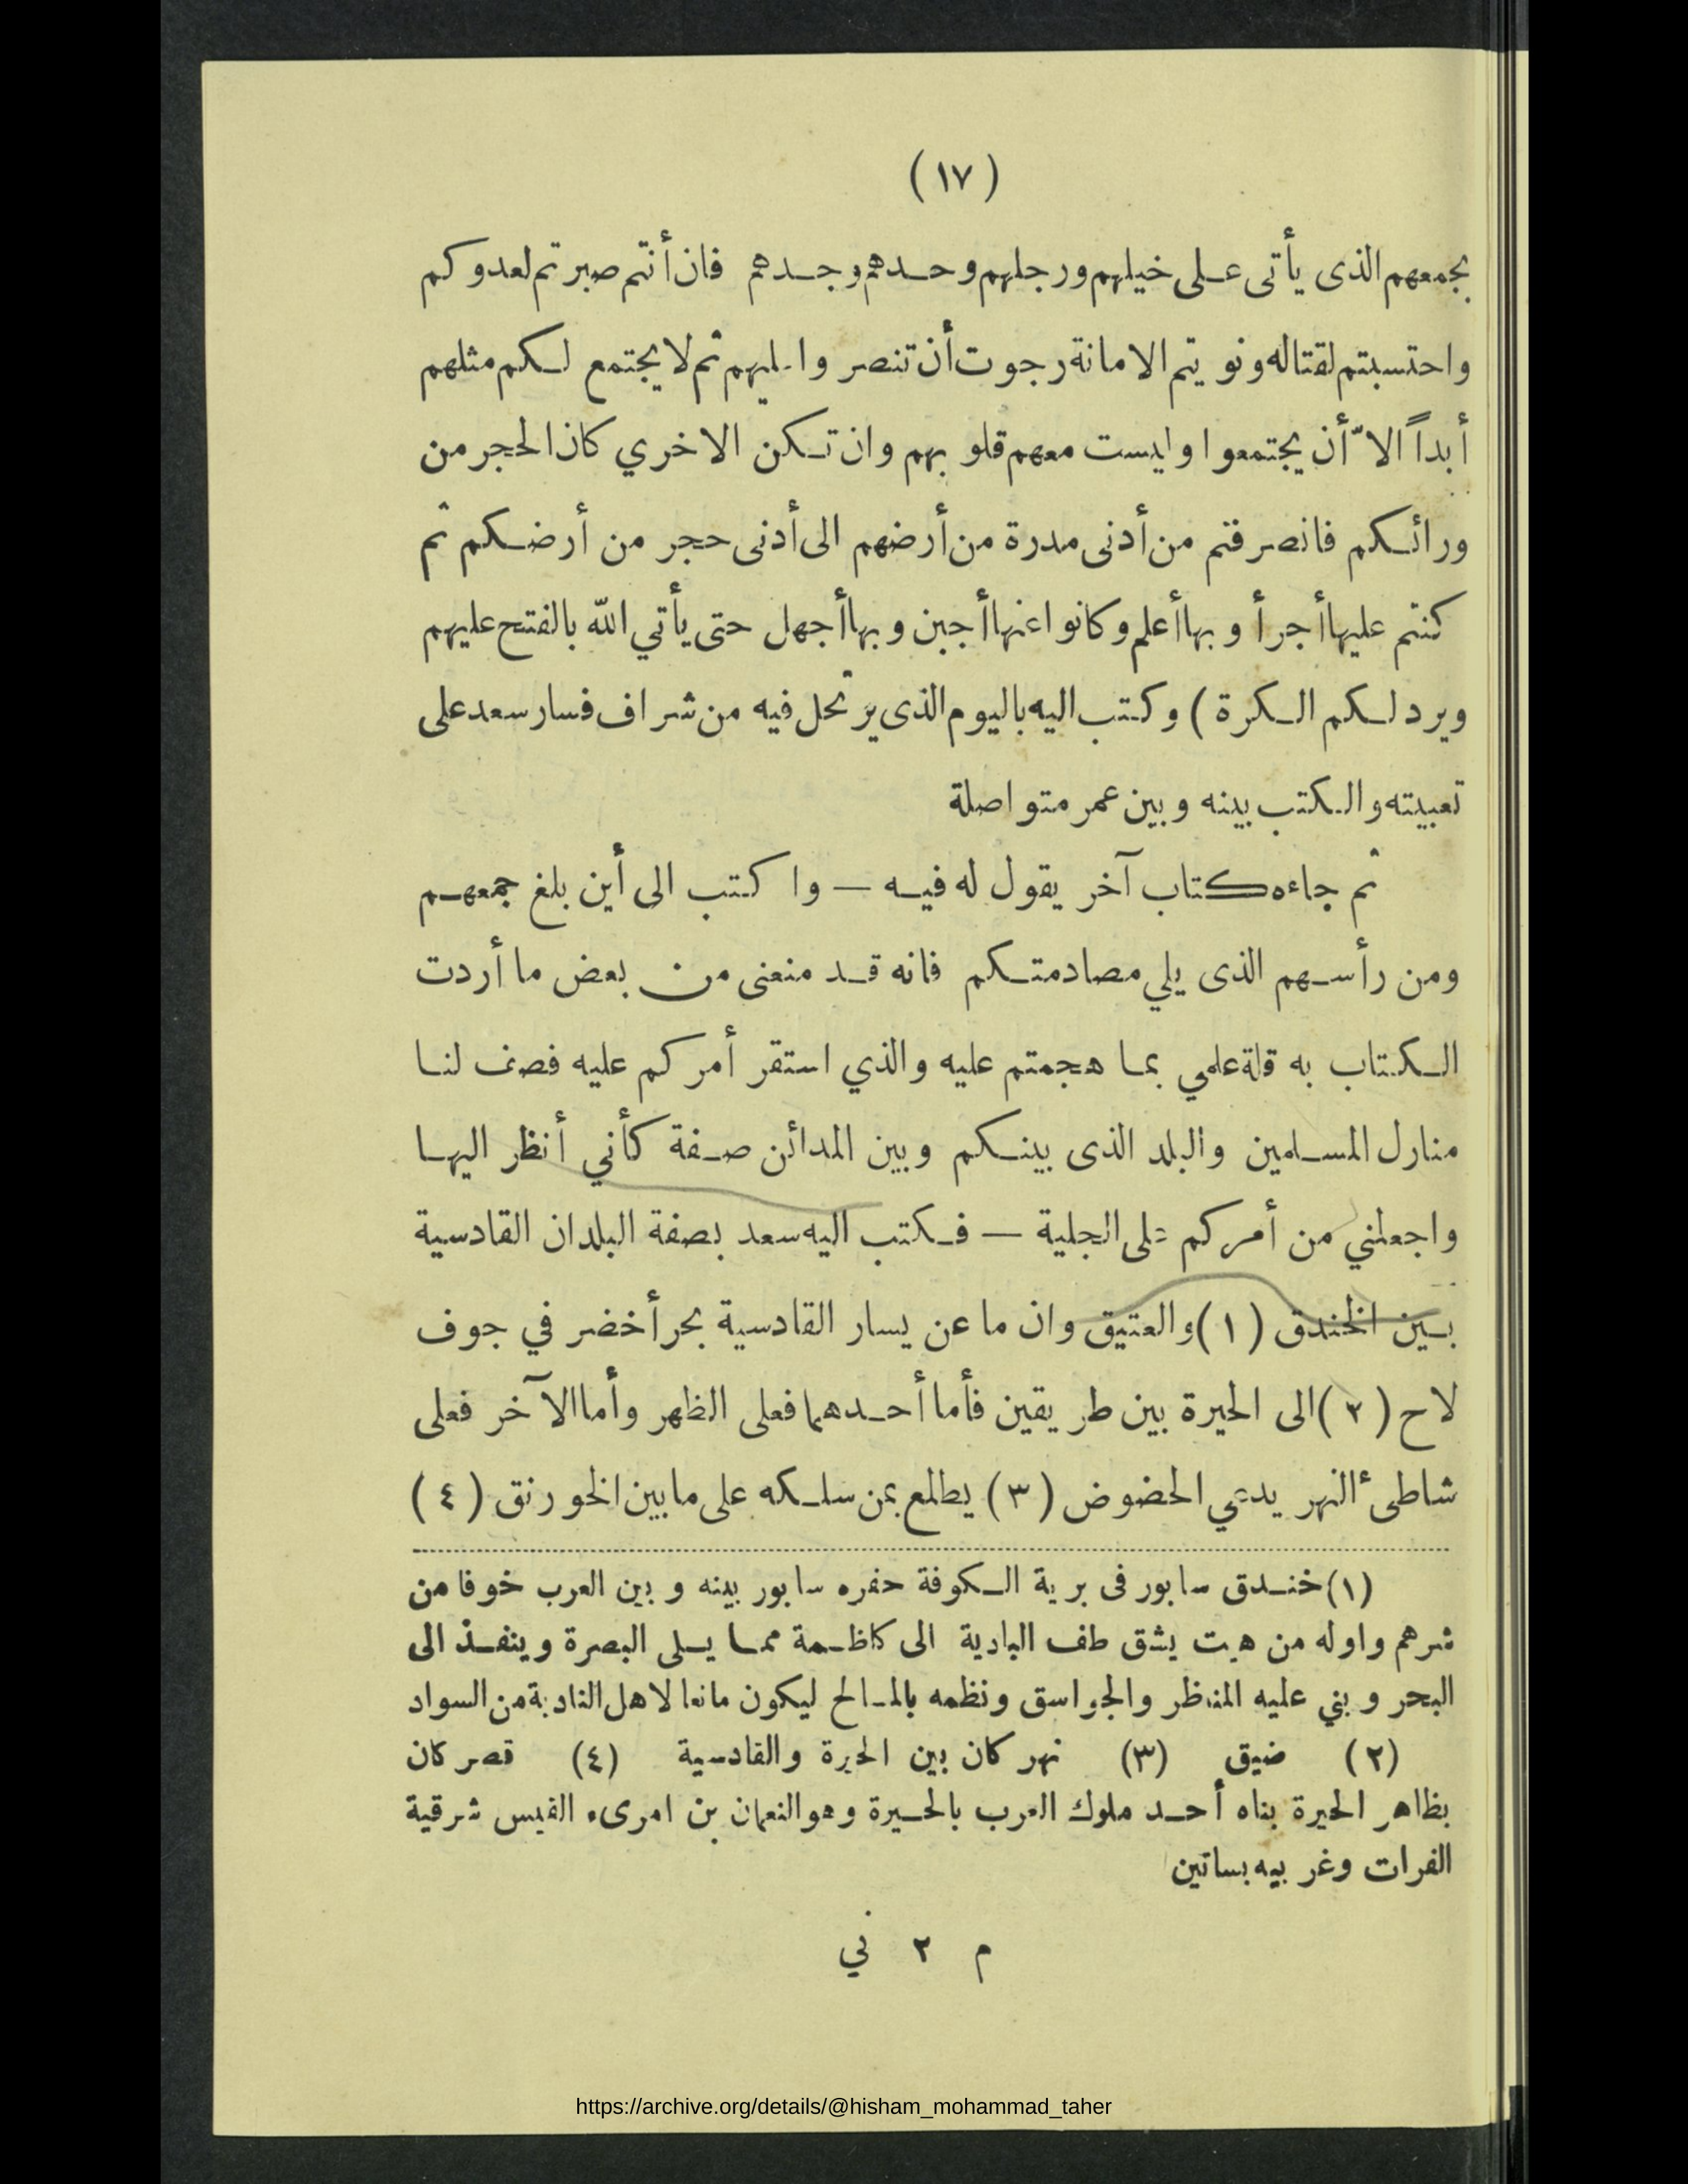 (١٧)
بجمعهم الذى يأتى على خيلهم ورجلهم وحدهم وجدهم فان أنتم صبرتم لعدوكم
واحتسبتم لقتاله ونويتم الامانة رجوت أن تنصروا عليهم ثم لا يجتمع لكم مثلهم
أبداً الاّ أن يجتمعوا وليست معهم قلوبهم وان تكن الاخري كان الحجر من
ورائكم فانصرفتم من أدنى مدرة من أرضهم الى أدنى حجر من أرضكم ثم
كنتم عليها أجرأ وبها أعلم وكانوا عنها أجبن وبها أجهل حتى يأتي الله بالفتح عليهم
ويرد لكم الكرة) وكتب اليه باليوم الذى يرتحل فيه من شراف فسار سعد على
تعبيته والكتب بينه وبين عمر متواصلة
ثم جاءه كتاب آخر يقول له فيه — واكتب الى أين بلغ جمعهم
ومن رأسهم الذى يلي مصادمتكم فانه قد منعنى من بعض ما أردت
الكتاب به قلة علمي بما هجمتم عليه والذي استقر أمركم عليه فصف لنا
منازل المسلمين والبلد الذى بينكم وبين المدائن صفة كأني أنظر اليها
واجعلني من أمركم على الجلية — فكتب اليه سعد بصفة البلدان القادسية
بين الخندق (١) والعتيق وان ما عن يسار القادسية بحر أخضر في جوف
لاح (٢) الى الحيرة بين طريقين فأما أحدهما فعلى الظهر وأما الآخر فعلى
شاطىء النهر يدعي الحضوض (٣) يطلع بمن سلكه على ما بين الخورنق (٤)
(١) خندق سابور فى برية الكوفة حفره سابور بينه وبين العرب خوفا من
شرهم واوله من هيت يشق طف البادية الى كاظمة مما يلى البصرة وينفذ الى
البحر وبني عليه المناظر والجواسق ونظمه بالمسالح ليكون مانعا لاهل البادية من السواد
(٢) ضيق (٣) نهر كان بين الحيرة والقادسية (٤) قصر كان
بظاهر الحيرة بناه أحد ملوك العرب بالحيرة وهو النعمان بن امرىء القيس شرقية
الفرات وغربيه بساتين
م ٢ ني
https://archive.org/details/@hisham_mohammad_taher